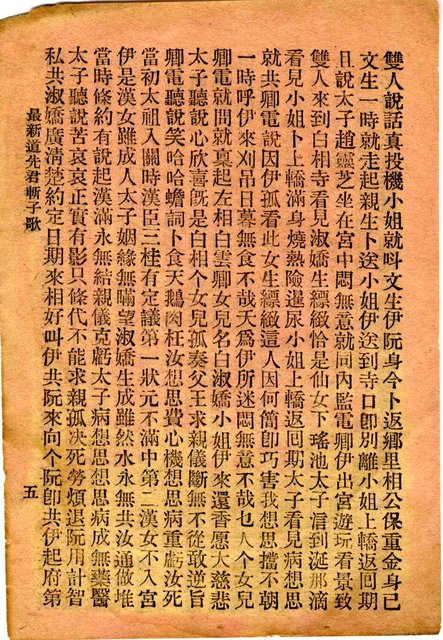 雙人說話真投機小姐就呌文生伊阮身今卜返鄉里相公保重金身己
文生一時就走起親生卜送小姐伊送到寺口卽別離小姐上轎返回期
且說太子趙靈芝坐在宮中悶無意就同內監電卿伊出宮遊玩看景致
雙人來到白相寺看見淑嬌生縹緻恰是仙女下瑤池太子看到涎那滴
看見小姐卜上轎滿身燒熱險遑尿小姐上轎返回期太子看見病想思
就共卿電說因伊孤看此女生縹緻這人因何簡卽巧害我想思擋不朝
一時呼伊來刈吊日暮無食不哉夭爲伊所迷悶無意不哉乜人个女兒
卿電就問就稟起左相白雲卿女兒名白淑嬌小姐伊來還香愿大慈悲
太子聽說心欣喜旣是白相个女兒孤奏父王求親儀斷無不從敢逆旨
卿電聽說笑哈哈蟾詞卜食天鵝肉枉汝想思費心機想思病重虧汝死
當初太祖入關時漢臣三桂有定議第一狀元不滿中第二漢女不入宮
伊是漢女雖成人太子姻緣無嚇望淑嬌生成雖然水永無共汝通做堆
當時條約有說起漢滿永無結親儀克虧太子病想思想思病成無藥醫
太子聽說苦哀哀正實有影只條代不能求親孤決死勞煩退阮用計智
私共淑嬌廣淸楚約定日期來相好叫伊共阮來向个阮卽共伊起府第
最新道先君斬子歌
五